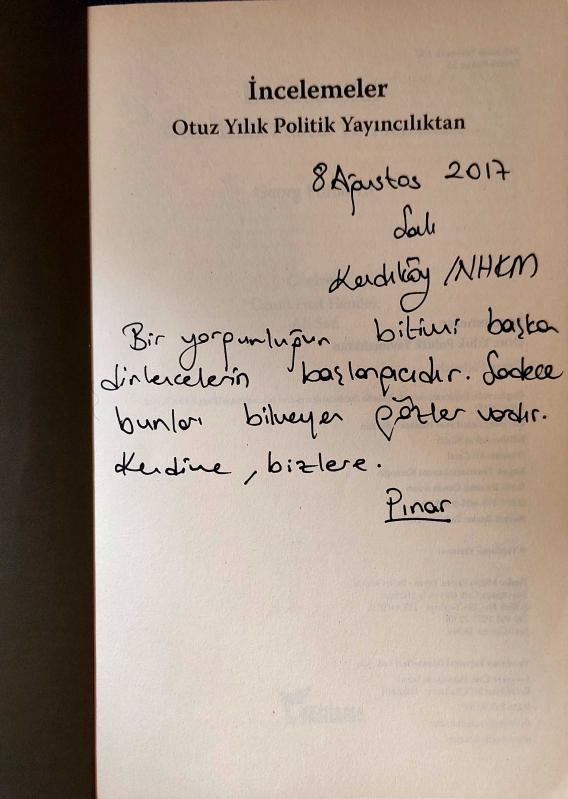 İncelemeler
Otuz Yıllık Politik Yayıncılıktan
8 Ağustos 2017
Salı
Kadıköy / NHKM
Bir yorgunluğun bitimi başka
dinlencelerin başlangıcıdır. Sadece
bunları bilmeyen gözler vardır.
Kendine, bizlere.
Pınar